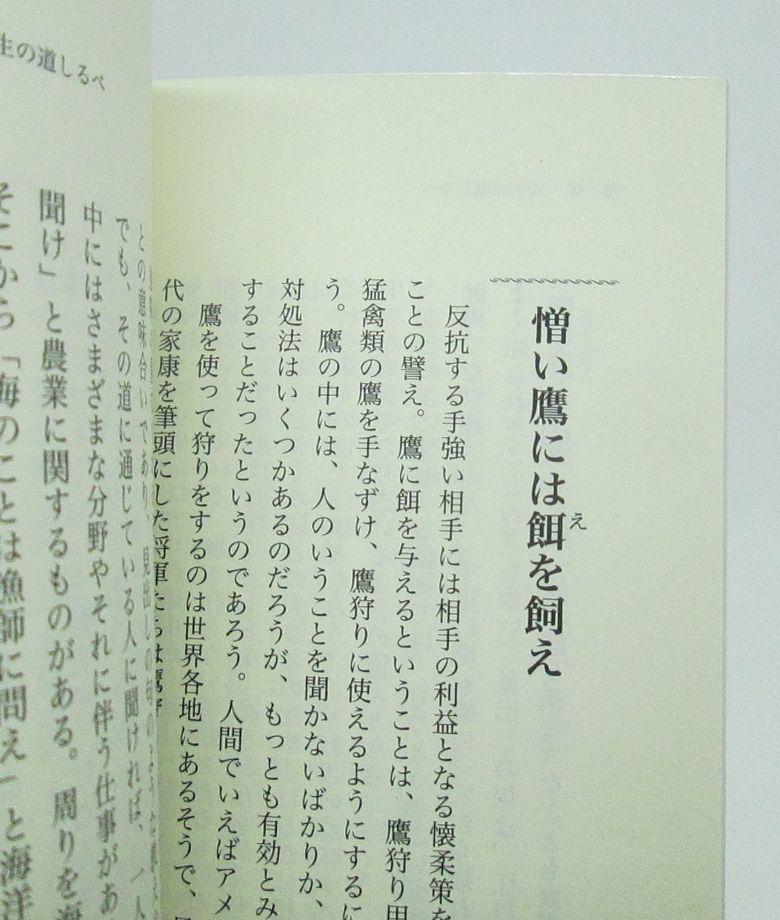 憎い鷹には餌を飼え
え
反抗する手強い相手には相手の利益となる懐柔策を
ことの譬え。鷹に餌を与えるということは、鷹狩り用
猛禽類の鷹を手なずけ、鷹狩りに使えるようにするに
う。鷹の中には、人のいうことを聞かないばかりか、
対処法はいくつかあるのだろうが、もっとも有効とみ
することだったというのであろう。人間でいえばアメ
鷹を使って狩りをするのは世界各地にあるそうで、
代の家康を筆頭にした将軍たちは鷹狩
生の道しるべ
との意味合いであり、見出しの
でも、その道に通じている人に聞ければ、
中にはさまざまな分野やそれに伴う仕事があ
聞け」と農業に関するものがある。周りを海
そこから「海のことは漁師に問え」と海洋